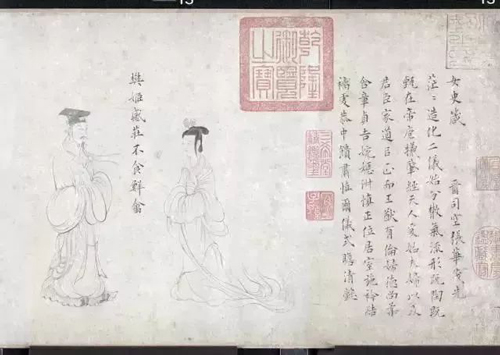 女史箴 晉司空張華茂先
茫〻造化二儀始分散氣流形既陶既
甄在帝庖犧肇經天人爰始夫婦以及
君臣家道以正而王猷有倫婦德尚柔
含章貞吉婉嫕淑慎正位居室施衿結
褵虔恭中饋肅慎爾儀式瞻清懿
三希堂
精鑑璽
宜
子孫
乾隆
御覽
之寶
樊姬感莊不食鮮禽